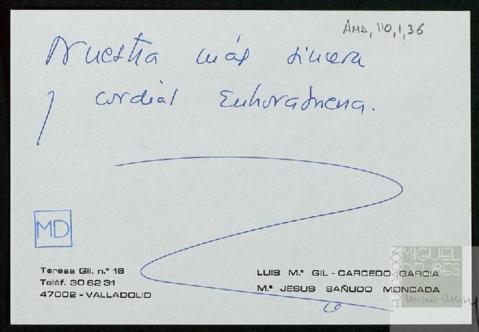 AMD, 110, 1, 36
Nuestra más sincera
y cordial Enhorabuena.
MD
Teresa Gil. n.º 18
Teléf. 30 62 31
47002 - VALLADOLID
LUIS M.ª GIL - CARCEDO GARCIA
M.ª JESUS SAÑUDO MONCADA
FUNDACIÓN
MIGUEL
DELIBES